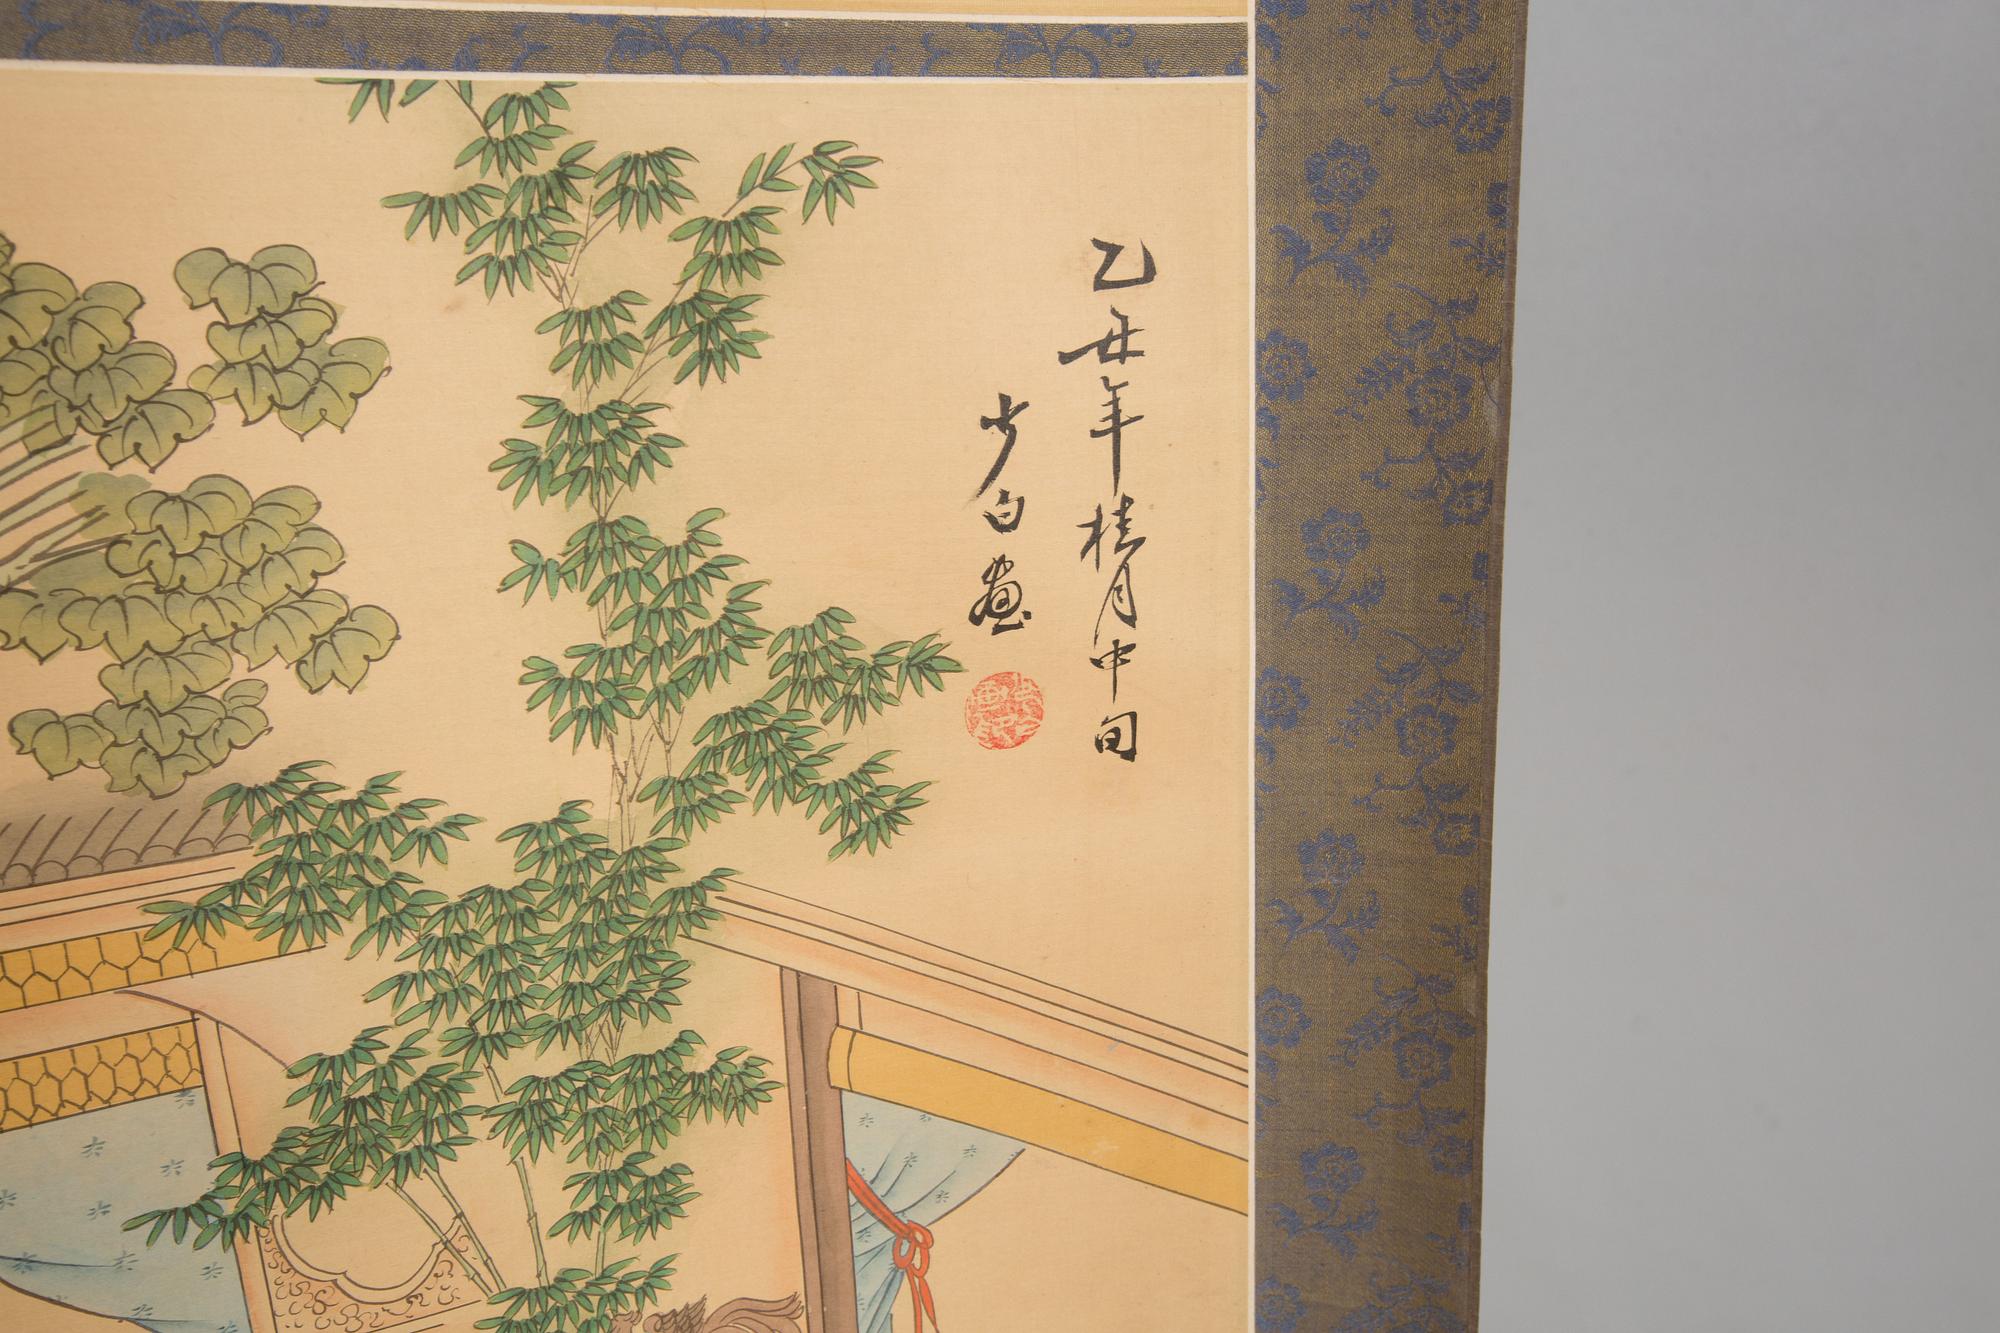 乙丑年桂月中旬
少白画